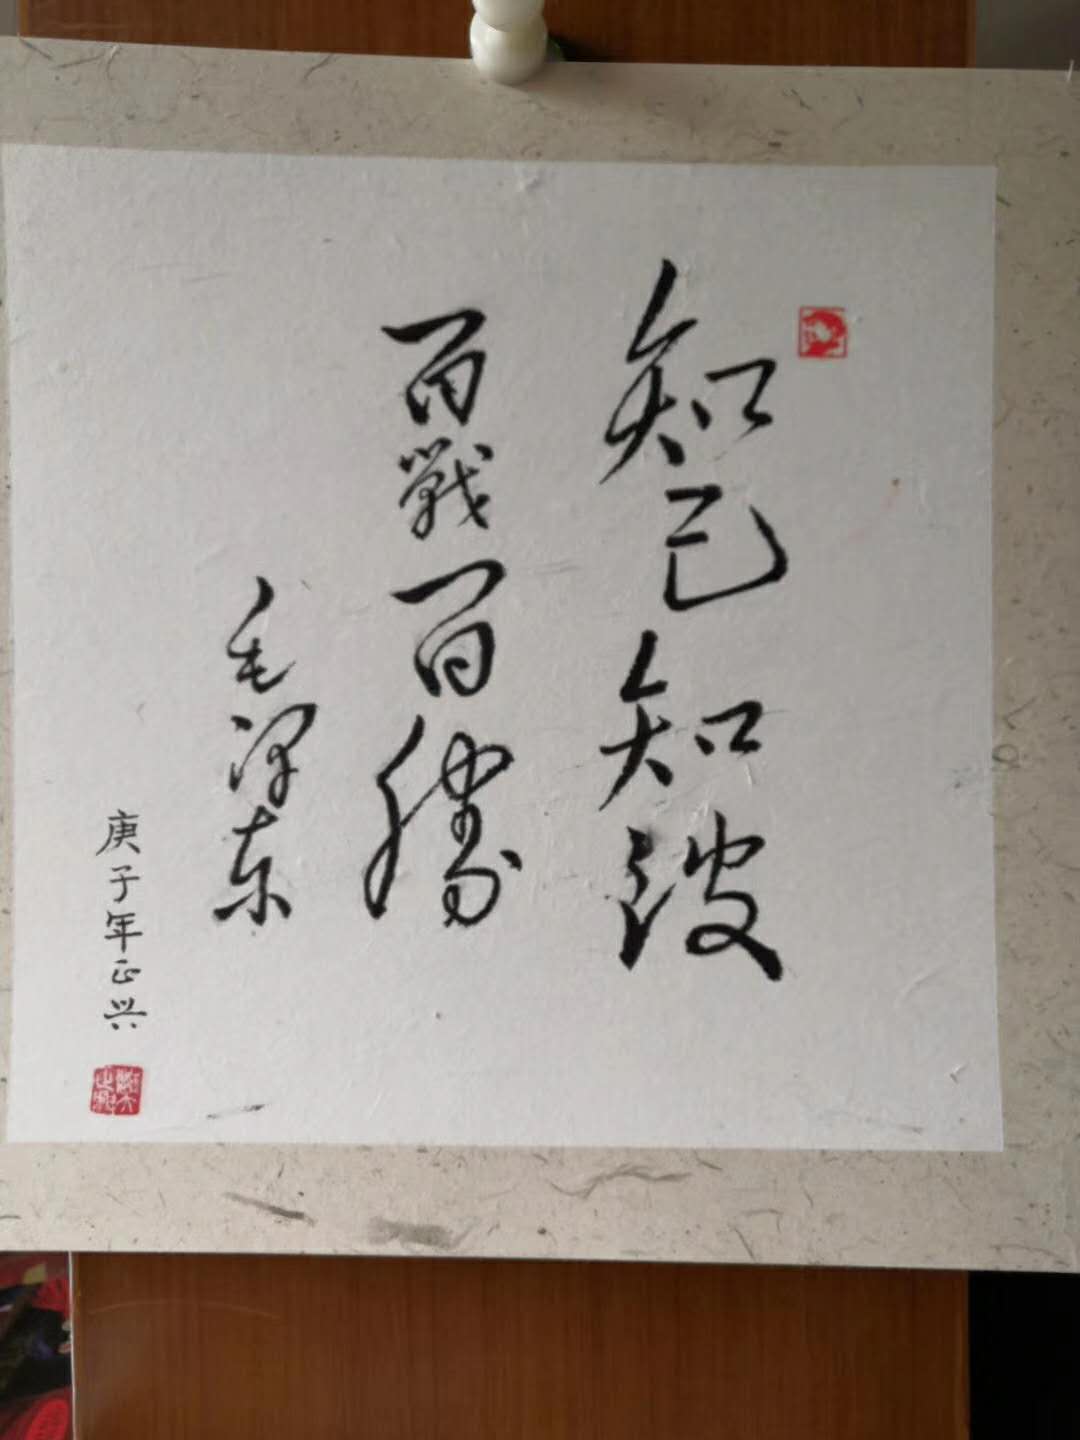 知己知彼
百戰百勝
毛泽东
庚子年正兴